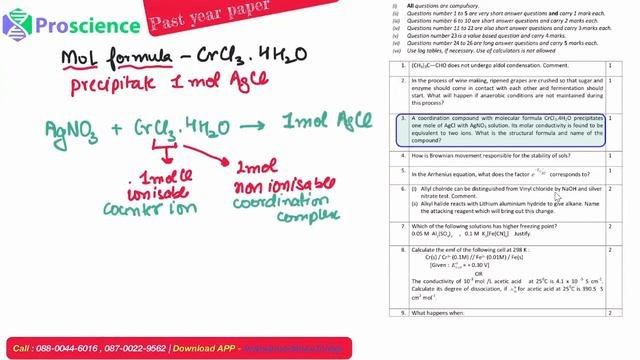 Proscience
Past year paper
Mol formula - CrCl3.4H2O
precipitate 1 mol AgCl
AgNO3 + CrCl3.4H2O → 1mol AgCl
1 mol Cl
ionisable
counter ion
1mol
non ionisable
coordination
complex
(i) All questions are compulsory.
(ii) Questions number 1 to 5 are very short answer questions and carry 1 mark each.
(iii) Questions number 6 to 10 are short answer questions and carry 2 marks each.
(iv) Questions number 11 to 22 are also short answer questions and carry 3 marks each.
(v) Question number 23 is a value based question and carry 4 marks.
(vi) Questions number 24 to 26 are long answer questions and carry 5 marks each.
(vii) Use log tables, if necessary. Use of calculators is not allowed
1. (CH3)3C—CHO does not undergo aldol condensation. Comment. 1
2. In the process of wine making, ripened grapes are crushed so that sugar and 1
enzyme should come in contact with each other and fermentation should
start. What will happen if anaerobic conditions are not maintained during
this process?
3. A coordination compound with molecular formula CrCl3.4H2O precipitates 1
one mole of AgCl with AgNO3 solution. Its molar conductivity is found to be
equivalent to two ions. What is the structural formula and name of the
compound?
4. How is Brownian movement responsible for the stability of sols? 1
5. In the Arrhenius equation, what does the factor corresponds to? 1
6. (i) Allyl chloride can be distinguished from Vinyl chloride by NaOH and silver 2
nitrate test. Comment.
(ii) Alkyl halide reacts with Lithium aluminium hydride to give alkane. Name
the attacking reagent which will bring out this change.
7. Which of the following solutions has higher freezing point? 2
0.05 M Al2(SO4)3, 0.1 M K3[Fe(CN)6] Justify.
8. Calculate the emf of the following cell at 298 K : 2
Cr(s) / Cr3+ (0.1M) // Fe2+ (0.01M) / Fe(s)
[Given : = + 0.30 V]
OR
The conductivity of 10-3 mol /L acetic acid at 25°C is 4.1 x 10-5 S cm-1.
Calculate its degree of dissociation, if for acetic acid at 25°C is 390.5 S
cm2 mol-1.
9. What happens when: 2
Call : 088-0044-6016 , 087-0022-9562 | Download APP -